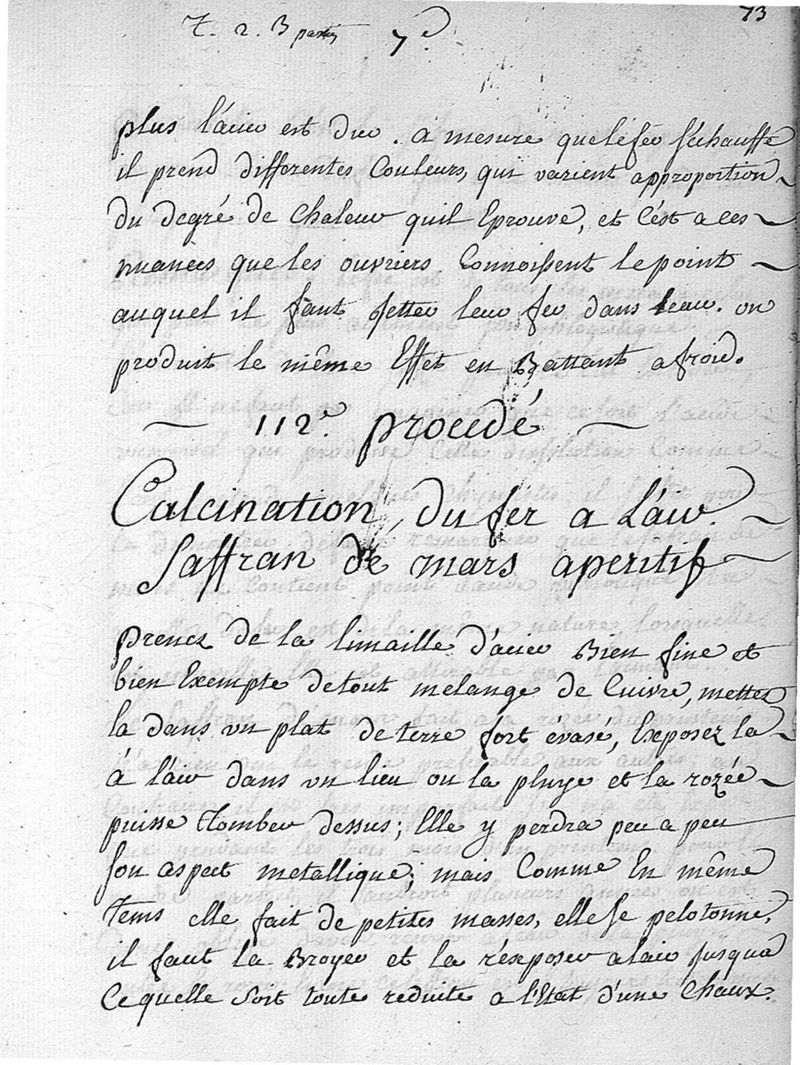 T. 2. 3 partie 7e 73
plus l'acier est dur. a mesure que le fer s'échauffe
il prend differentes Couleurs, qui varient approportion
du degré de Chaleur quil Eprouve, et C'est a ces
nuances que les ouvriers Connoissent le point
auquel il faut jetter leur fer dans leau. on
produit le même Effet en Battant a froid.
112e. procedé
Calcination du fer a L'air.
Saffran de mars aperitif
prenez de la limaille d'acier Bien fine et
bien Exempte de tout melange de Cuivre, mettez
la dans un plat de terre fort évasé, Exposez la
à lair dans un lieu ou la pluye et la rozée
puisse Tomber dessus; Elle y perdra peu a peu
son aspect metallique; mais Comme En même
Tems elle fait de petites masses, elle se pelotonne,
il faut la Broyer et la réxposer a lair jusqua
Ce quelle soit toute reduite a l'Etat d'une Chaux.